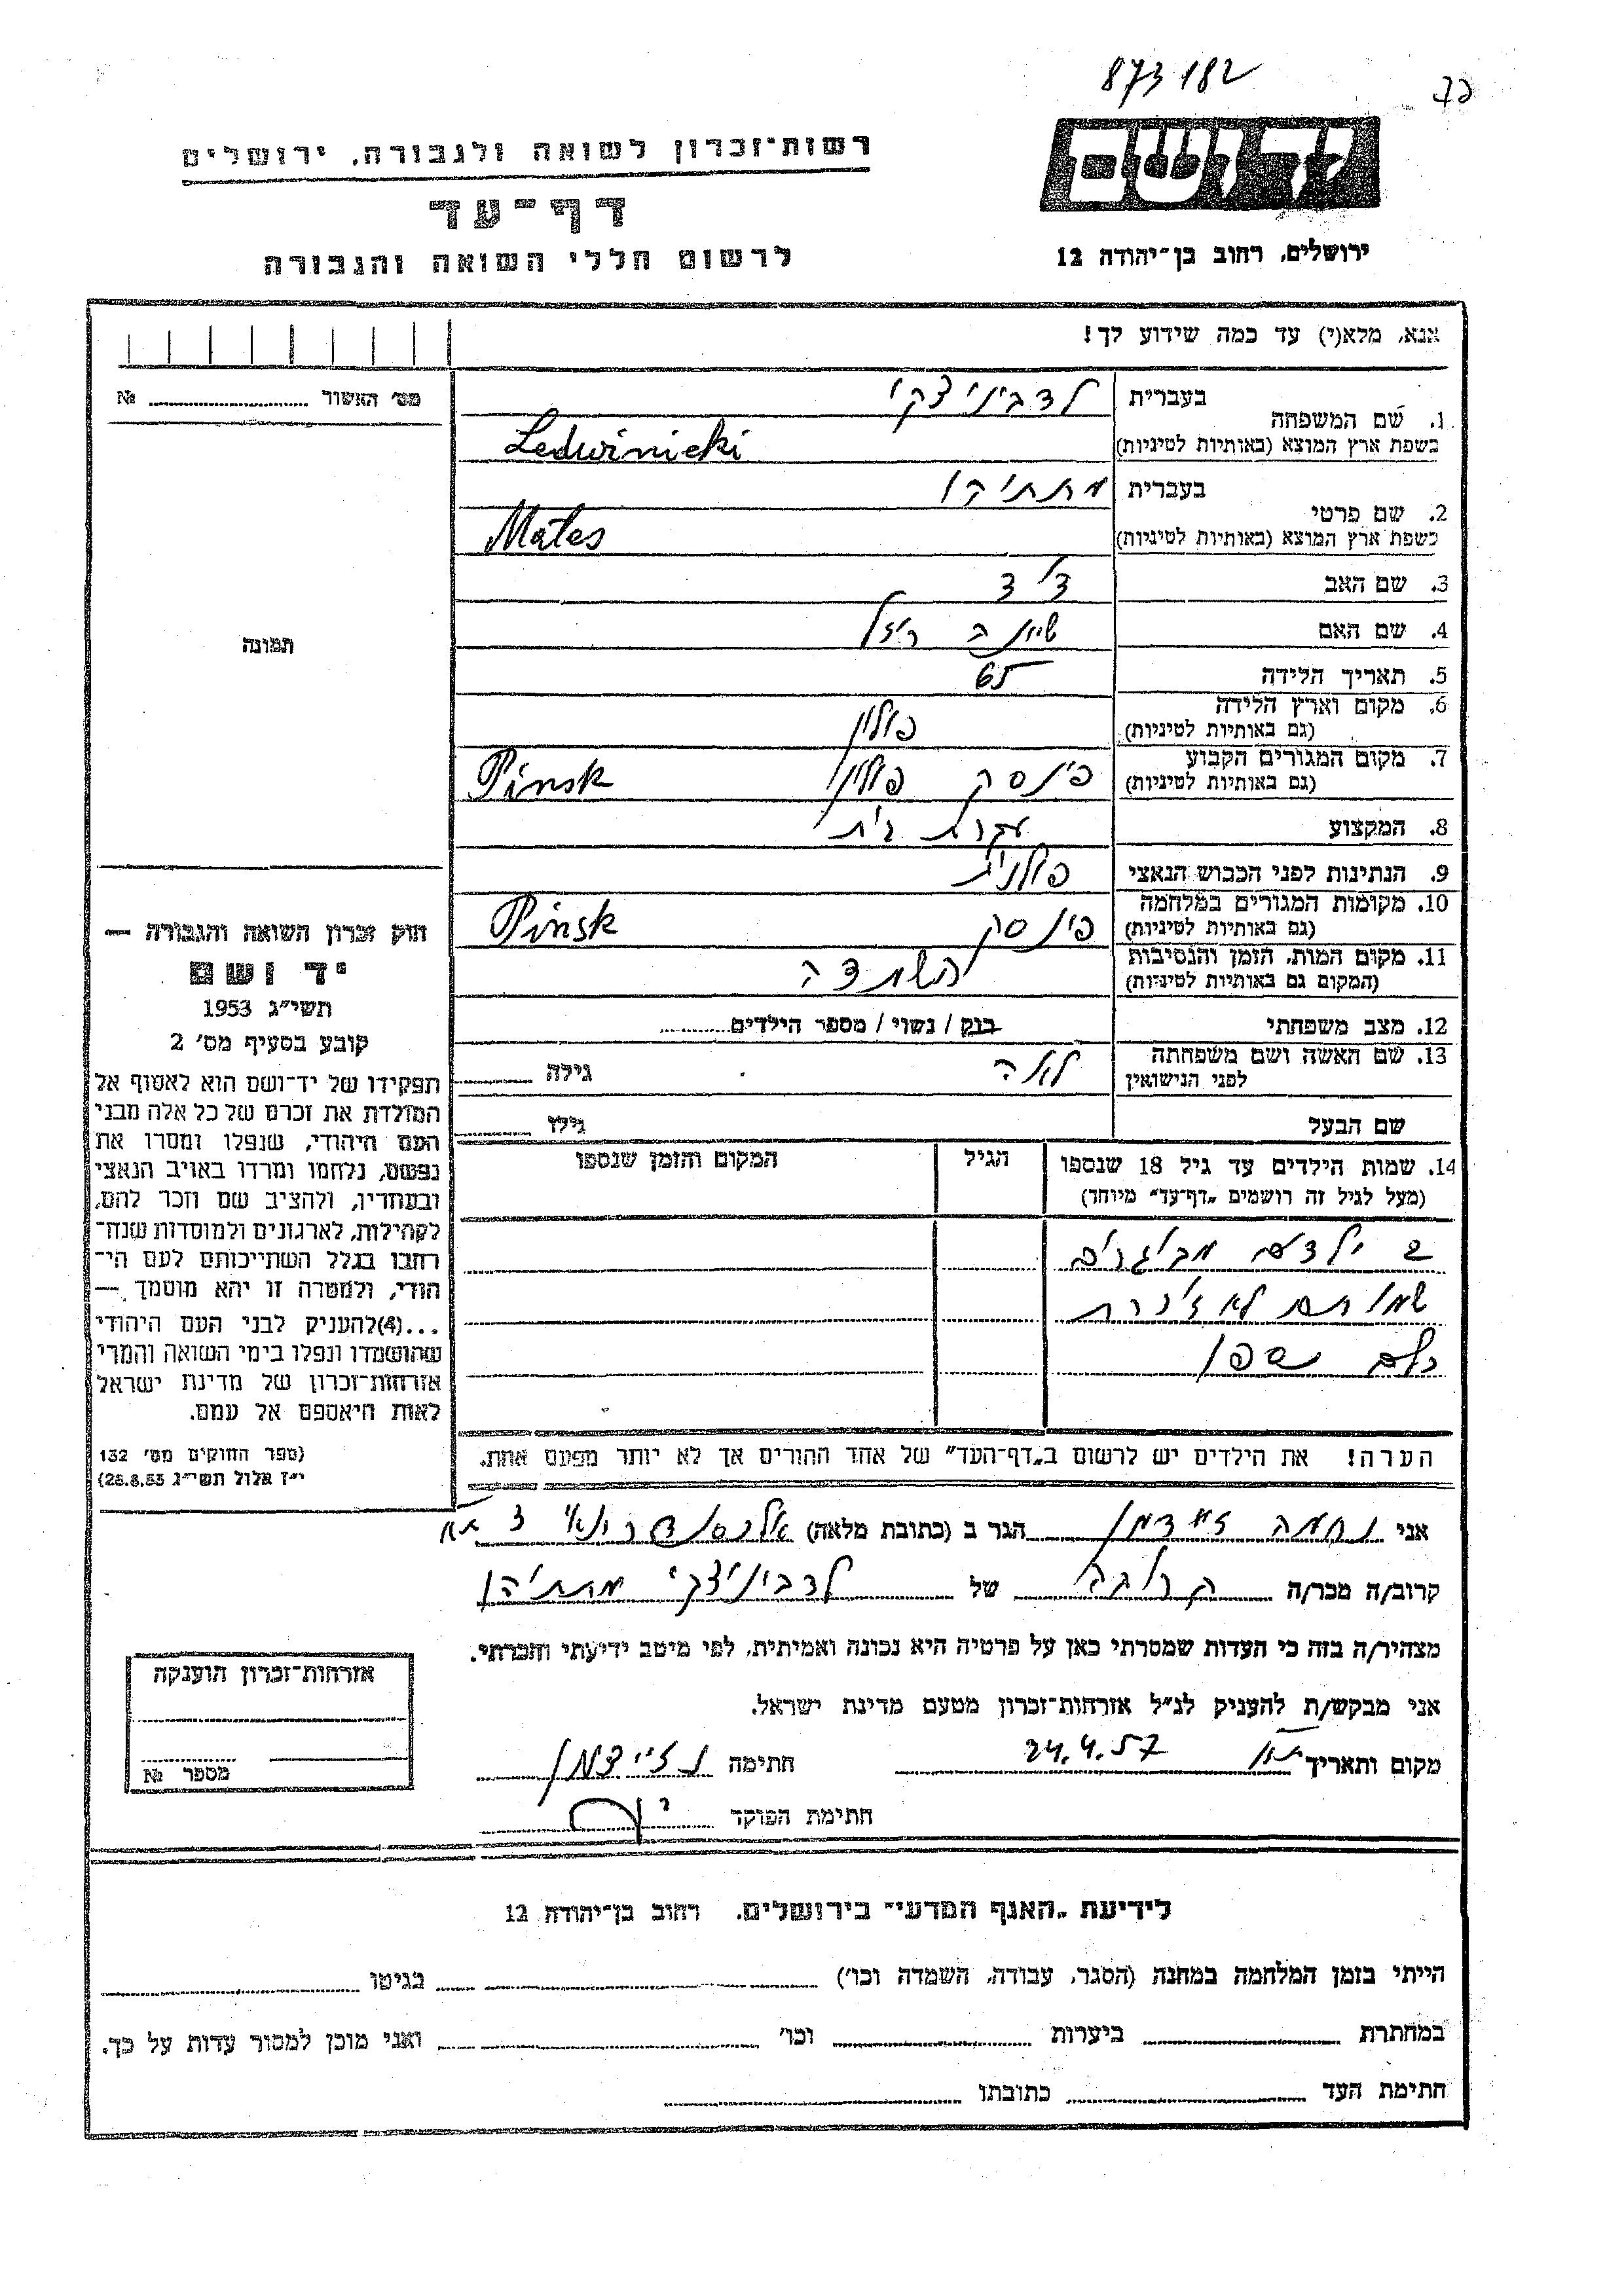 873182
רשות־זכרון לשואה ולגבורה, ירושלים
דף־עד
לרשום חללי השואה והגבורה
יד ושם
ירושלים, רחוב בן־יהודה 12
אנא, מלא(י) עד כמה שידוע לך!
מס' האשור № 
1. שם המשפחה בעברית לדביניצקי
בשפת ארץ המוצא (באותיות לטיניות) Ledwinicki
2. שם פרטי בעברית
בשפת ארץ המוצא (באותיות לטיניות) Mates
3. שם האב
4. שם האם
5. תאריך הלידה 65
6. מקום וארץ הלידה פולין
(גם באותיות לטיניות)
7. מקום המגורים הקבוע פינסק פולין Pinsk
(גם באותיות לטיניות)
8. המקצוע עקרת בית
9. הנתינות לפני הכבוש הנאצי פולנית
10. מקומות המגורים במלחמה פינסק Pinsk
(גם באותיות לטיניות)
11. מקום המות, הזמן והנסיבות השמדה
(המקום גם באותיות לטיניות)
12. מצב משפחתי רווק / נשוי / מספר הילדים
13. שם האשה ושם משפחתה לאה גילה
לפני הנישואין
שם הבעל גילו
14. שמות הילדים עד גיל 18 שנספו הגיל המקום והזמן שנספו
(מעל לגיל זה רושמים „דף־עד" מיוחד)
2 ילדים מבוגרים
שמותם לא זוכרת
כולם נספו
הערה! את הילדים יש לרשום ב„דף־העד" של אחד ההורים אך לא יותר מפעם אחת.
תמונה
חוק זכרון השואה והגבורה —
יד ושם
תשי"ג 1953
קובע בסעיף מס' 2
תפקידו של יד־ושם הוא לאסוף אל
המולדת את זכרם של כל אלה מבני
העם היהודי, שנפלו ומסרו את
נפשם, נלחמו ומרדו באויב הנאצי
ובעוזריו, ולהציב שם וזכר להם,
לקהילות, לארגונים ולמוסדות שנח־
רבו בגלל השתייכותם לעם הי־
הודי, ולמטרה זו יהא מוסמך —
...(4)להעניק לבני העם היהודי
שהושמדו ונפלו בימי השואה והמרי
אזרחות־זכרון של מדינת ישראל
לאות היאספם אל עמם.
(ספר החוקים מס' 132
י"ז אלול תשי"ג 28.8.53)
אני נחמה זיידמן הגר ב (כתובת מלאה)
קרוב/ה מכר/ה קרובה של לדביניצקי מתתיהו
מצהיר/ה בזה כי העדות שמסרתי כאן על פרטיה היא נכונה ואמיתית, לפי מיטב ידיעתי והכרתי.
אני מבקש/ת להעניק לנ"ל אזרחות־זכרון מטעם מדינת ישראל.
מקום ותאריך ת"א 24.4.57 חתימה נ זיידמן
חתימת הפוקד
אזרחות־זכרון הוענקה
מספר №
לידיעת „האגף המדעי" בירושלים, רחוב בן־יהודה 12
הייתי בזמן המלחמה במחנה (הסגר, עבודה, השמדה וכו') בגיטו
במחתרת ביערות וכו' ואני מוכן למסור עדות על כך.
חתימת העד כתובתו